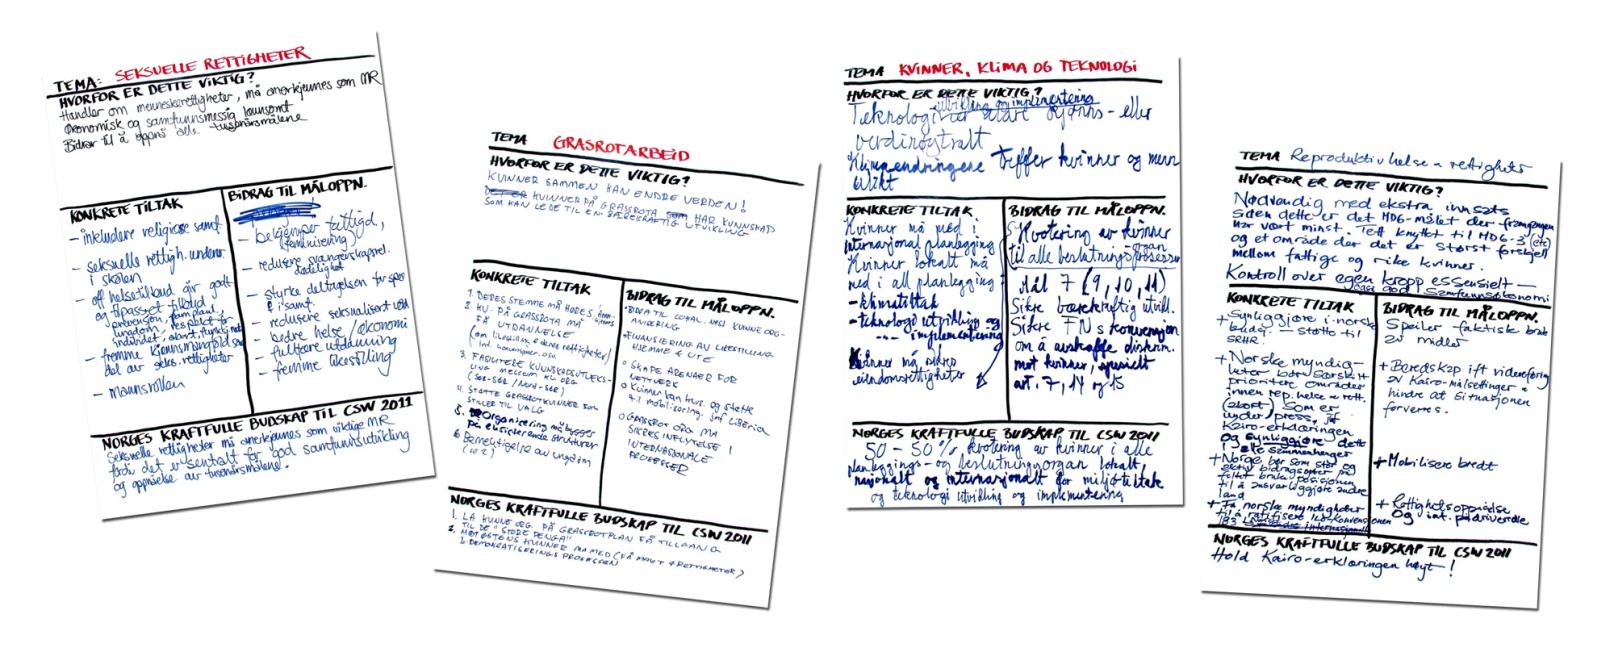 TEMA: SEKSUELLE RETTIGHETER
HVORFOR ER DETTE VIKTIG?
Handler om menneskerettigheter, må anerkjennes som MR
Økonomisk og samfunnsmessig lønnsomt
Bidrar til å oppnå alle tusenårsmålene
KONKRETE TILTAK
- inkludere religiøse samf.
- seksuelle rettigh. underv.
i skolen
- off helsetilbud gir godt
og tilpasset tilbud,
prevensjon, fam.plan,
ungdom, respekt for
- fremme kjønnsmangfold som
del av seks. rettigheter
- mannsrollen
BIDRAG TIL MÅLOPPN.
- bekjemper fattigd,
feminisering
- redusere svangerskapsrel.
dødelighet
- styrke deltagelsen for
i samf.
- redusere seksualisert vold
- bedre helse / økonomi
- fullføre utdanning
- fremme likestilling
NORGES KRAFTFULLE BUDSKAP TIL CSW 2011
Seksuelle rettigheter må anerkjennes som viktige MR
fordi det er sentralt for god samfunnsutvikling
og oppnåelse av tusenårsmålene.
TEMA GRASROTARBEID
HVORFOR ER DETTE VIKTIG?
KVINNER SAMMEN KAN ENDRE VERDEN!
KVINNER PÅ GRASROTA HAR KUNNSKAP
SOM KAN LEDE TIL EN BÆREKRAFTIG UTVIKLING
KONKRETE TILTAK
1. DERES STEMME MÅ HØRES
2. KV. PÅ GRASROTA MÅ
FÅ UTDANNELSE
(om likestilling & deres rettigheter)
3. FASILITERE KUNNSKAPSUTVEKS-
LING MELLOM KV. ORG
(SØR-SØR / NORD-SØR)
4. STØTTE GRASROTKVINNER SOM
STILLER TIL VALG
5. Organisering må bygges
på eksisterende strukturer
6. Bevisstgjøre av ungdom
BIDRAG TIL MÅLOPPN.
BIDRA TIL LOKAL, NASJ KVINNEORG-
ANISERING
FINANSIERING AV LIKESTILLING
HJEMME & UTE
SKAPE ARENAER FOR
NETTVERK
Kvinner kan kurs. og støtte
til mobilisering. jmf Liberia
GRASROT ORG MÅ
SIKRES INNFLYTELSE I
INTERNASJONALE
PROSESSER
NORGES KRAFTFULLE BUDSKAP TIL CSW 2011
1. LA KVINNE ORG. PÅ GRASROTPLAN FÅ TILGANG
TIL DE "STORE PENGA"
KVINNER MÅ MED (FÅ MAKT & RETTIGHETER)
I DEMOKRATISERINGS PROSESSEN
TEMA KVINNER, KLIMA OG TEKNOLOGI
HVORFOR ER DETTE VIKTIG?
utvikling og implementering
Teknologi er aldri kjønns- eller
verdinøytralt
Klimaendringene treffer kvinner og menn
ulikt
KONKRETE TILTAK
Kvinner må med i
internasjonal planlegging
Kvinner lokalt må
med i all planlegging
- klimatiltak
- teknologi utvikling og
--- implementering
Kvinner må sikres
eiendomsrettigheter
BIDRAG TIL MÅLOPPN.
Kvotering av kvinner
til alle beslutningsprosesser
-organ
Mål 7 (9, 10, 11)
Sikre bærekraftig utvikl.
Sikre FNs konvensjon
om å avskaffe diskrim.
mot kvinner, spesielt
art. 7, 14 og 15
NORGES KRAFTFULLE BUDSKAP TIL CSW 2011
50 - 50 % kvotering av kvinner i alle
planleggings- og beslutningsorgan lokalt,
nasjonalt og internasjonalt for miljøtiltak
og teknologi utvikling og implementering
TEMA Reproduktiv helse & rettigheter
HVORFOR ER DETTE VIKTIG?
Nødvendig med ekstra innsats
siden dette er det MDG-målet der framgangen
har vært minst. Tett knyttet til MDG-3 (etc)
og et område der det er størst forskjell
mellom fattige og rike kvinner.
Kontroll over egen kropp essensielt -
også god samfunnsøkonomi
KONKRETE TILTAK
+ Synliggjøre i norsk
budsj. - støtte til
SRHR!
+ Norske myndig-
heter bør særskilt
prioritere områder
innen rep. helse & rett.
(abort) som er
under press, jf
Kairo-erklæringen
og synliggjøre dette
i alle sammenhenger
+ Norge bør som stor og
aktiv bidragsyter på
feltet bruke posisjonen
til å ansvarliggjøre andre
land
+ Få norske myndigheter
til å ratifisere ILO-konvensjonen
183
BIDRAG TIL MÅLOPPN.
Speiler faktisk bruk
av midler
+ Beredskap ift videreføring
av Kairo-målsettinger &
hindre at situasjonen
forverres.
+ Mobilisere bredt
+ Rettighetsoppnåelse
og int. pådriverrolle
NORGES KRAFTFULLE BUDSKAP TIL CSW 2011
Hold Kairo-erklæringen høyt!